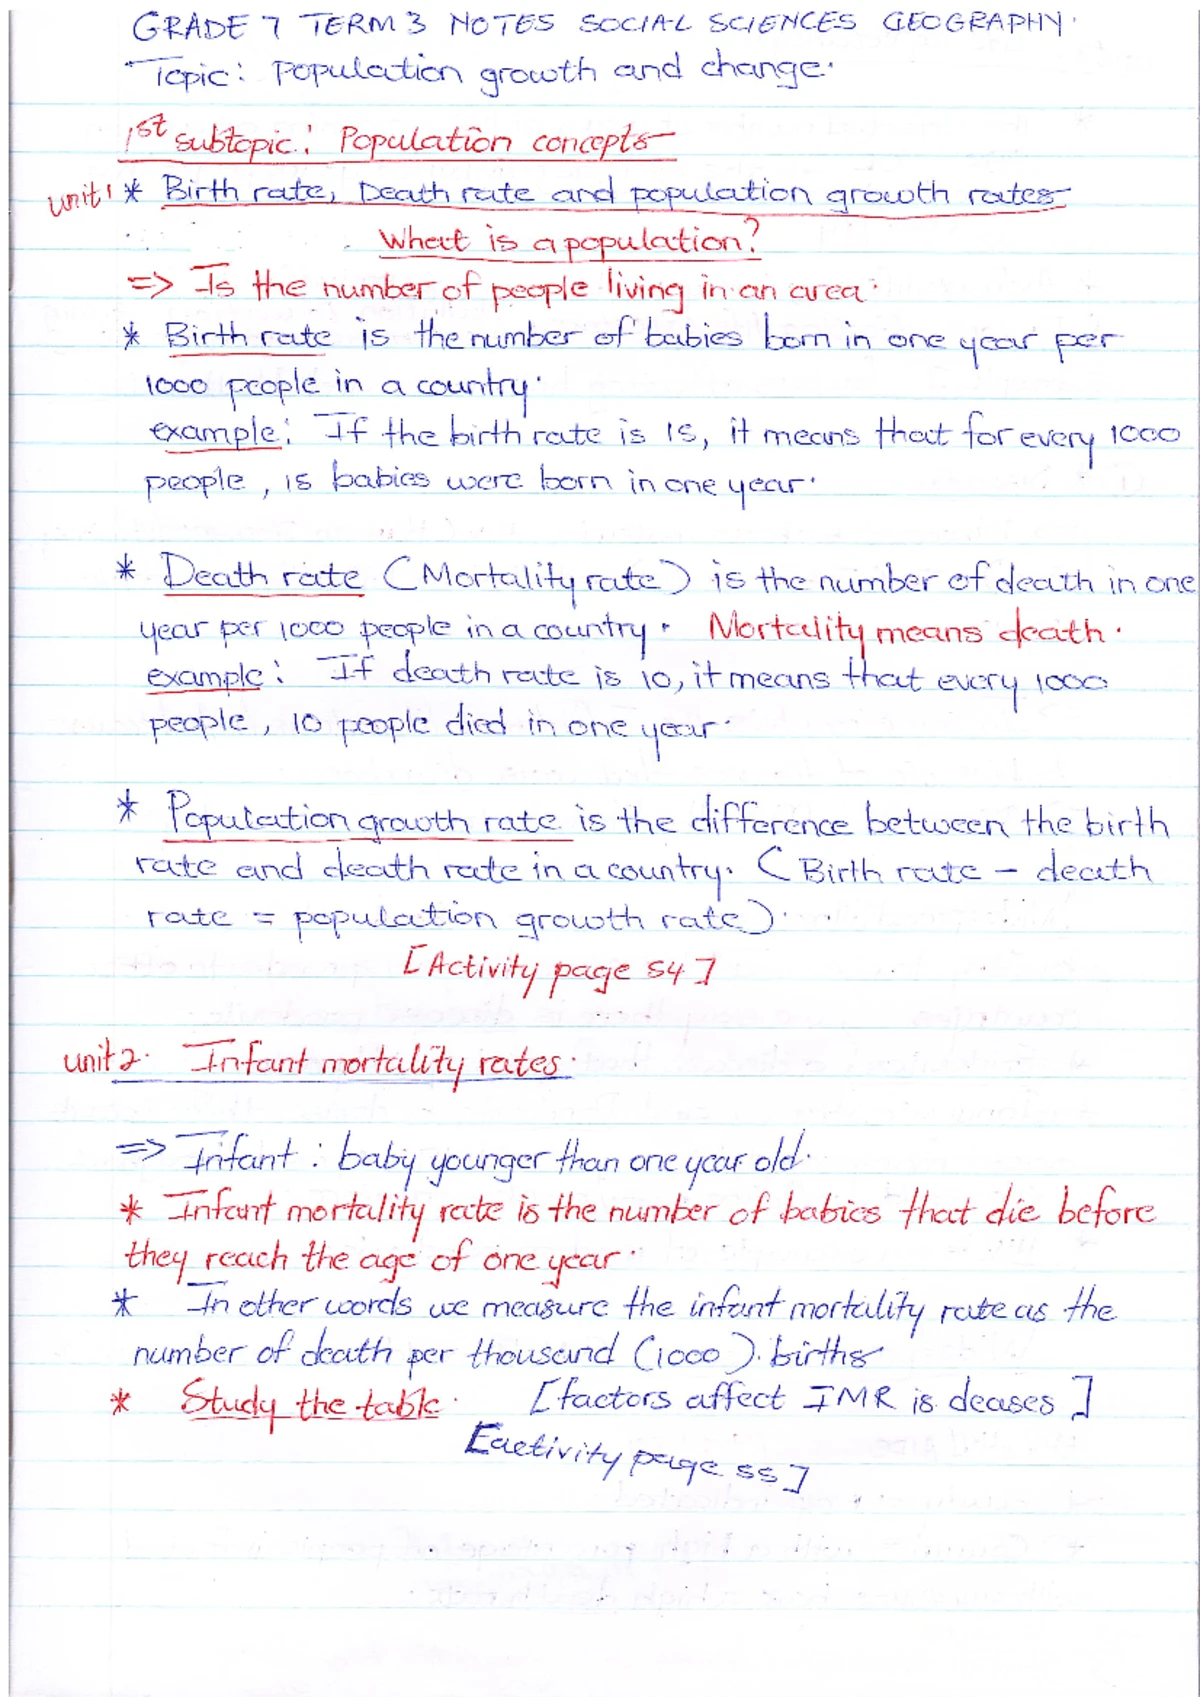 GRADE 7 TERM 3 NOTES SOCIAL SCIENCES GEOGRAPHY.
Topic: Population growth and change.
1st subtopic: Population concepts
unit 1 * Birth rate, Death rate and population growth rates
What is a population?
=> Is the number of people living in an area.
* Birth rate is the number of babies born in one year per
1000 people in a country.
example: If the birth rate is 15, it means that for every 1000
people, 15 babies were born in one year.
* Death rate (Mortality rate) is the number of death in one
year per 1000 people in a country. Mortality means death.
example: If death rate is 10, it means that every 1000
people, 10 people died in one year.
* Population growth rate is the difference between the birth
rate and death rate in a country. (Birth rate - death
rate = population growth rate).
[Activity page 54]
unit 2. Infant mortality rates.
=> Infant: baby younger than one year old.
* Infant mortality rate is the number of babies that die before
they reach the age of one year.
* In other words we measure the infant mortality rate as the
number of death per thousand (1000). births
* Study the table. [factors affect IMR is deases]
[activity page 55]